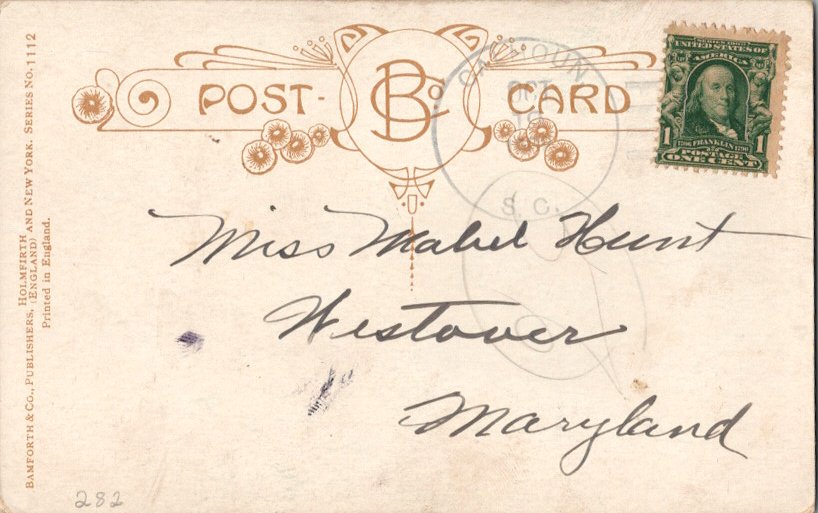 BAMFORTH & CO., PUBLISHERS, HOLMFIRTH (ENGLAND) AND NEW YORK. SERIES NO. 1112
Printed in England.
POST- B Co CARD
CALHOUN
OCT
S. C.
SERIES 1902
UNITED STATES OF
AMERICA
1706 FRANKLIN 1790
1 1
POSTAGE
ONE CENT
Miss Mabel Hunt
Westover
Maryland
282